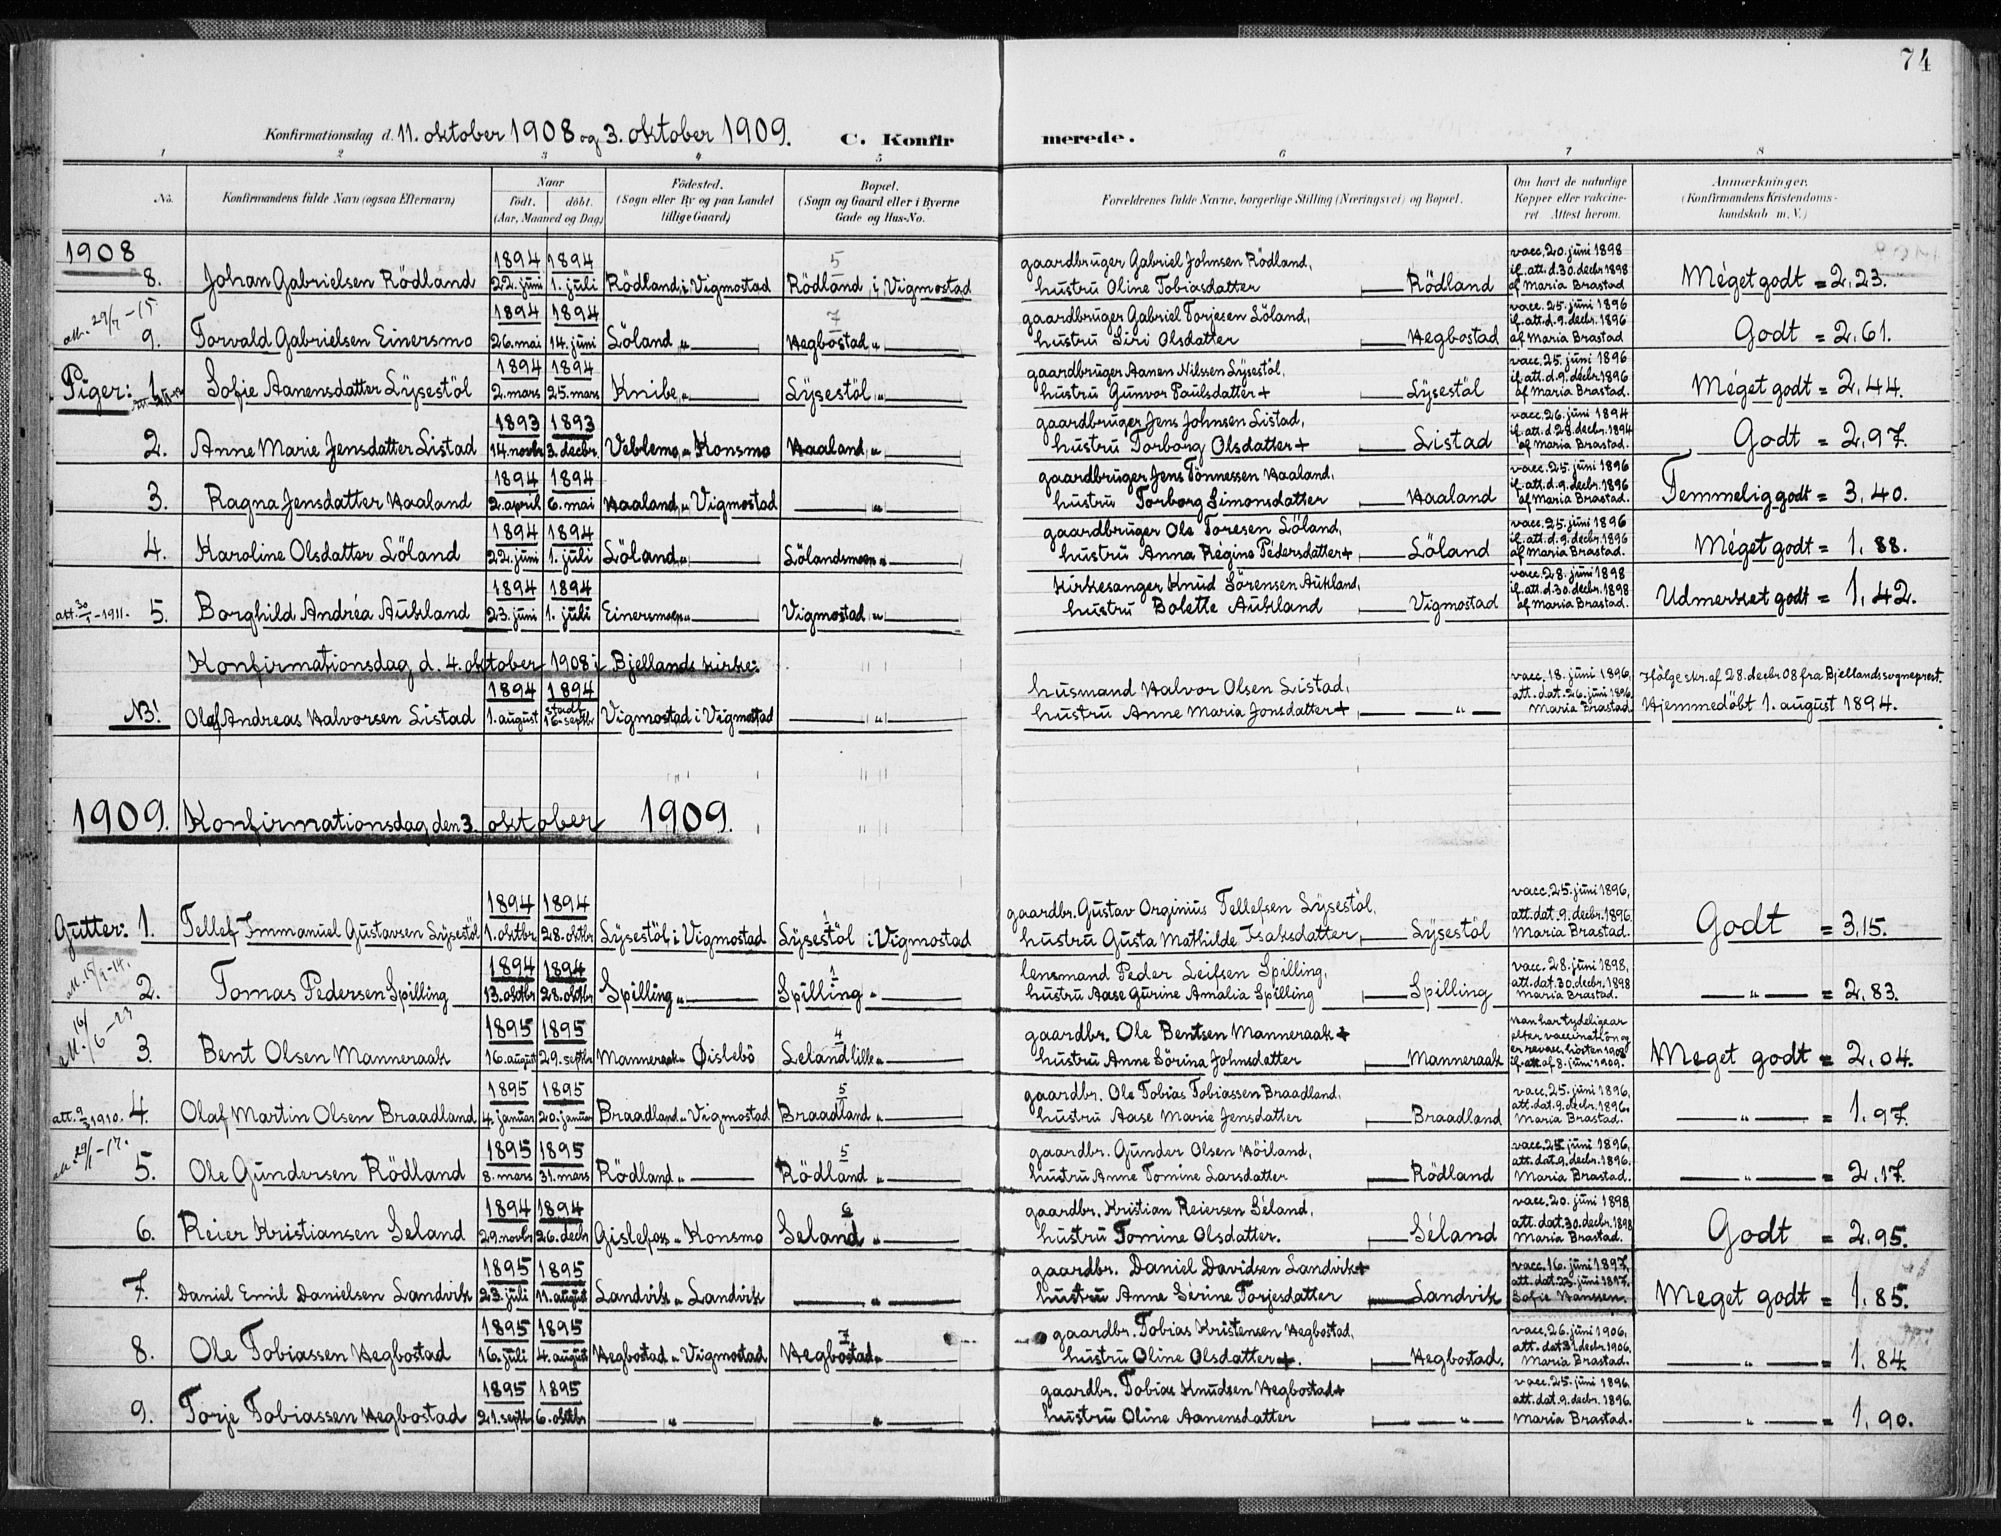 74
Konfirmationsdag d. 11. oktober 1908 og 3. oktober 1909. C. Konfirmerede.
1 2 3 4 5 6 7 8
No. Konfirmandens fulde Navn (ogsaa Efternavn) Naar födt. döbt. (Aar, Maaned og Dag) Födested. (Sogn eller By og paa Landet tillige Gaard) Bopæl. (Sogn og Gaard eller i Byerne Gade og Hus-No. Forældrenes fulde Navne, borgerlige Stilling (Næringsvei) og Bopæl. Om havt de naturlige Kopper eller vakcineret. Attest herom. Anmærkninger. (Konfirmandens Kristendomskundskab m. V.)
1908
8. Johan Gabrielsen Rödland 1894 22. juni 1894 1. juli Rödland i Vigmostad 5 Rödland i Vigmostad gaardbruger Gabriel Johnsen Rödland, hustru Oline Tobiasdatter — Rödland vacc. 20. juni 1898 if. att. d. 30. decbr 1898 af Maria Brastad Meget godt = 2,23.
att. 29/7-15 9. Torvald Gabrielsen Einersmo 1894 26. mai 1894 14. juni Löland „ — 7 Hegbostad „ — gaardbruger Gabriel Torjesen Löland, hustru Siri Olsdatter — Hegbostad vacc. 25. juni 1896 if. att. d. 9. decbr. 1896 af Maria Brastad Godt = 2,61.
Piger: 1. Sofie Aanensdatter Lÿsestöl 1894 2. mars 1894 25. mars Knibe „ — Lÿsestöl „ — gaardbruger Aanen Nilssen Lÿsestöl, hustru Gunvor Paulsdatter + — Lÿsestöl vacc. 25. juni 1896 if. att. d. 9. decbr. 1896 af Maria Brastad. Meget godt = 2,44.
2. Anne Marie Jensdatter Listad 1893 14. novbr 1893 3. decbr. Veblemo „ Konsmo Haaland „ — gaardbruger Jens Johnsen Listad, hustru Torborg Olsdatter + — Listad vacc. 26. juni 1894 if. att. d. 28. decbr. 1894 af Maria Brastad. Godt = 2,97.
3. Ragna Jensdatter Haaland 1894 2. april 1894 6. mai Haaland „ Vigmostad — „ — gaardbruger Jens Tönnessen Haaland, hustru Torborg Simonsdatter — Haaland vacc. 25. juni 1896 if. att. d. 9. decbr. 1896 af Maria Brastad. Temmelig godt = 3,40.
4. Karoline Olsdatter Löland 1894 22. juni 1894 1. juli Löland „ — Lölandsmoen „ — gaardbruger Ole Toresen Löland, hustru Anna Regine Pedersdatter + — Löland vacc. 25. juni 1896 if. att. d. 9. decbr. 1896 af Maria Brastad. Meget godt = 1,88.
5. Borghild Andréa Aukland 1894 23. juni 1894 1. juli Einersmoen „ — Vigmostad „ — Kirkesanger Knud Sörensen Aukland, hustru Bolette Aukland — Vigmostad vacc. 28. juni 1898 if. att. d. 30. decbr. 1898 af Maria Brastad. Udmerket godt = 1,42.
Konfirmationsdag d. 4. oktober 1908 i Bjellands kirke:
NB! Olaf Andreas Halvorsen Listad 1894 1. august 1894 stadf. 16. septbr Vigmostad i Vigmostad — „ — husmand Halvor Olsen Listad, hustru Anne Maria Jonsdatter + — „ — vacc. 18. juni 1896, att. dat. 26. juni 1896 Maria Brastad. Ifölge skr. af 28. decbr 08 fra Bjellands sogneprest. Hjemmedöbt 1. august 1894.
1909. Konfirmationsdag den 3. oktober 1909.
Gutter: 1. Tellef Immanuel Gustavsen Lÿsestöl 1894 1. oktbr 1894 28. oktbr Lÿsestöl i Vigmostad 1 Lÿsestöl i Vigmostad gaardbr. Gustav Orginius Tellefsen Lÿsestöl, hustru Gusta Mathilde Isaksdatter — Lÿsestöl vacc. 25. juni 1896, att. dat. 9. decbr. 1896. Maria Brastad. Godt = 3,15.
att. 15/9-14. 2. Tomas Pedersen Spilling 1894 13. oktbr 1894 28. oktbr Spilling „ — 1 Spilling „ — lensmand Peder Leifsen Spilling, hustru Aase Gurine Amalia Spilling — Spilling vacc. 28. juni 1898, att. dat. 30. decbr. 1898 Maria Brastad. — „ — = 2,83.
att. 16/6-23 3. Bent Olsen Manneraak 1895 16. august 1895 29. septbr Manneraak „ Øislebö 4 Leland lille „ — gaardbr. Ole Bentsen Manneraak + hustru Anne Sörina Johnsdatter — Manneraak Han har tydelige ar efter vaccination og er revacc. hösten 1908 if. att. af 8. juni 1909. Meget godt = 2,04.
att. 9/3 1910. 4. Olaf Martin Olsen Braadland 1895 4. januar 1895 20. januar Braadland „ Vigmostad 5 Braadland „ — gaardbr. Ole Tobias Tobiassen Braadland, hustru Aase Marie Jensdatter — Braadland vacc. 25. juni 1896, att. dat. 9. decbr. 1896. Maria Brastad. — „ — = 1,97.
att. 29/1-17. 5. Ole Gundersen Rödland 1895 8. mars 1895 31. mars Rödland „ — 5 Rödland „ — gaardbr. Gunder Olsen Höiland, hustru Anne Tomine Larsdatter — Rödland vacc. 25. juni 1896, att. dat. 9. decbr. 1896. Maria Brastad. — „ — = 2,17.
6. Reier Kristiansen Seland 1894 29. novbr 1894 26. decbr Gislefoss „ Konsmo 6 Seland „ — gaardbr. Kristian Reiersen Séland, hustru Tomine Olsdatter. — Séland vacc. 20. juni 1898, att. dat. 30. decbr. 1898 Maria Brastad. Godt = 2,95.
7. Daniel Emil Danielsen Landvik 1895 23. juli 1895 11. august Landvik „ Landvik — „ — gaardbr. Daniel Davidsen Landvik + hustru Anne Serine Torjesdatter — Landvik vacc. 16. juni 1897, att. dat. 23. juni 1897. Sofie Hanssen. Meget godt = 1,85.
8. Ole Tobiassen Hegbostad 1895 16. juli 1895 4. august Hegbostad „ Vigmostad 7 Hegbostad „ — gaardbr. Tobias Kristensen Hegbostad, hustru Oline Olsdatter +. — Hegbostad. vacc. 26. juni 1906, att. dat. 31. decbr. 1906. Maria Brastad. — „ — = 1,84
9. Torje Tobiassen Hegbostad 1895 21. septbr 1895 6. oktbr — „ — — „ — gaardbr. Tobias Knudsen Hegbostad + hustru Oline Aanensdatter — „ — vacc. 25. juni 1896 att. dat. 9. decbr. 1896. Maria Brastad. — „ — = 1,90.